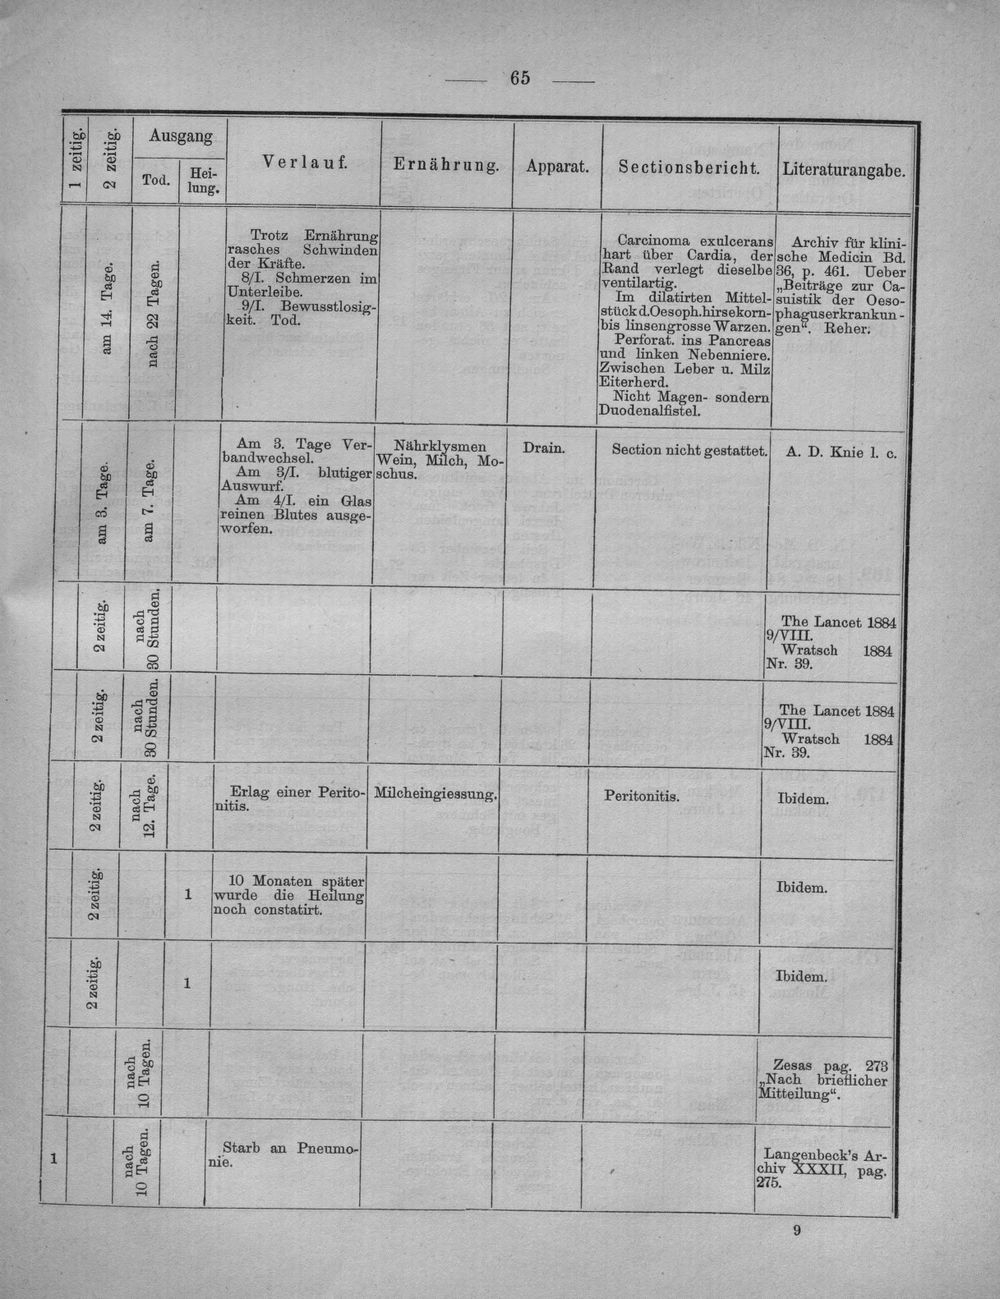 65
1 zeitig.
2 zeitig.
Ausgang
Tod.
Hei-
lung.
Verlauf.
Ernährung.
Apparat.
Sectionsbericht.
Literaturangabe.
am 14. Tage.
nach 22 Tagen.
Trotz Ernährung
rasches Schwinden
der Kräfte.
8/I. Schmerzen im
Unterleibe.
9/I. Bewusstlosig-
keit. Tod.
Carcinoma exulcerans
hart über Cardia, der
Rand verlegt dieselbe
ventilartig.
Im dilatirten Mittel-
stück d. Oesoph. hirsekorn-
bis linsengrosse Warzen.
Perforat. ins Pancreas
und linken Nebenniere.
Zwischen Leber u. Milz
Eiterherd.
Nicht Magen- sondern
Duodenalfistel.
Archiv für klini-
sche Medicin Bd.
36, p. 461. Ueber
„Beiträge zur Ca-
suistik der Oeso-
phaguserkrankun-
gen“. Reher.
am 3. Tage.
am 7. Tage.
Am 3. Tage Ver-
bandwechsel.
Am 3/I. blutiger
Auswurf.
Am 4/I. ein Glas
reinen Blutes ausge-
worfen.
Nährklysmen
Wein, Milch, Mo-
schus.
Drain.
Section nicht gestattet.
A. D. Knie l. c.
2 zeitig.
nach
30 Stunden.
The Lancet 1884
9/VIII.
Wratsch 1884
Nr. 39.
2 zeitig.
nach
30 Stunden.
The Lancet 1884
9/VIII.
Wratsch 1884
Nr. 39.
2 zeitig.
nach
12. Tage.
Erlag einer Perito-
nitis.
Milcheingiessung.
Peritonitis.
Ibidem.
2 zeitig.
1
10 Monaten später
wurde die Heilung
noch constatirt.
Ibidem.
2 zeitig.
1
Ibidem.
nach
10 Tagen.
Zesas pag. 273
„Nach brieflicher
Mitteilung“.
1
nach
10 Tagen.
Starb an Pneumo-
nie.
Langenbeck's Ar-
chiv XXXII, pag.
275.
9